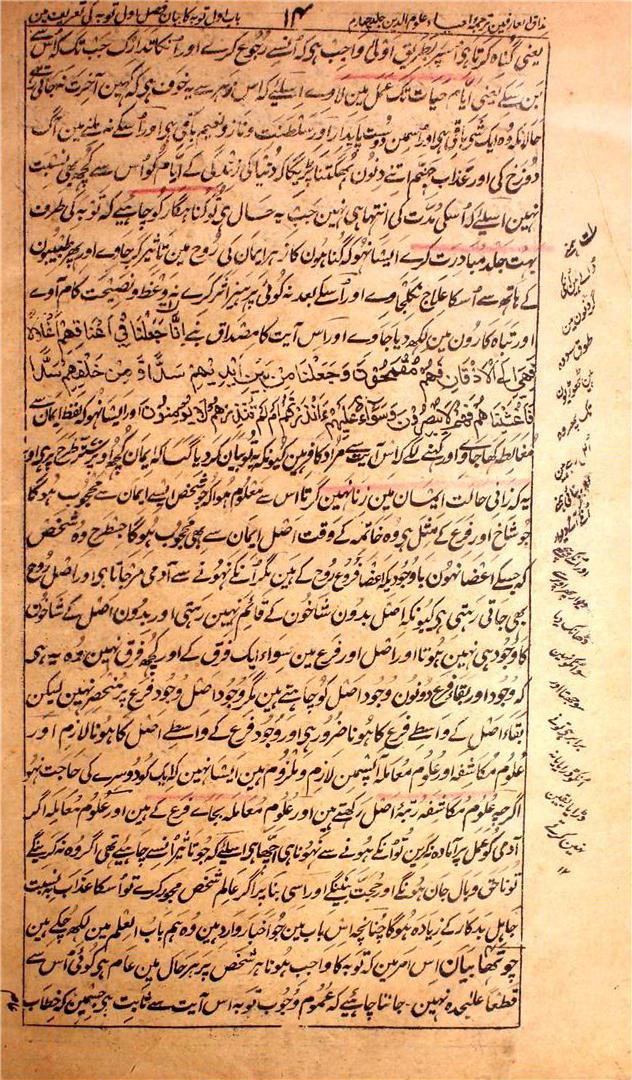 مذاق العارفین ترجمہ احیاء علوم الدین جلد چہارم ۱۴ باب اول توبہ کا بیان فصل اول توبہ کی تعریف مین
یعنی گناہ کرتا ہی اُسپر بطریق اولیٰ واجب ہی کہ اُنسے رجوع کرے اور اُنکا تدارک جب تک کہ اُس سے
بن سکے یعنی ایام حیات تک عمل مین لاوے اسلیے کہ اس زہر سے یہ خوف ہی کہ کہین آخرت نہ جاتی رہے
حالانکہ وہ ایک شی باقی ہی اور اُسمین دوست پایدار اور سلطنت و ناز و نعیم باقی ہی اور اُسکے نہ ملنے مین آگ
دوزخ کی اور عذاب جہنم اتنے دنون بھگتنا پڑیگا کہ دنیا کی زندگی کے ایام کو اُس سے کچھ بھی نسبت
نہین اسلیے کہ اُسکی مدت کی انتہا ہی نہین جب یہ حال ہی تو گناہگار کو چاہیے کہ توبہ کی طرف
بہت جلد مبادرت کرے ایسا نہو کہ گناہون کا زہر ایمان کی روح مین تاثیر کر جاوے اور پھر طبیبون
کے ہاتھ سے اُسکا علاج نکل جاوے اور اُسکے بعد نہ کوئی پرہیز اثر کرے نہ وعظ و نصیحت کام آوے
اور تباہ کارون مین لکھ دیا جاوے اور اس آیت کا مصداق بنے اِنَّا جَعَلْنَا فِی اَعْنَاقِهِمْ اَغْلَالًا
فَهِیَ اِلَی الْاَذْقَانِ فَهُمْ مُقْمَحُوْنَ وَجَعَلْنَا مِنْ بَیْنِ اَیْدِیْهِمْ سَدًّا وَّمِنْ خَلْفِهِمْ سَدًّا
فَاَغْشَیْنَاهُمْ فَهُمْ لَا یُبْصِرُوْنَ وَسَوَآءٌ عَلَیْهِمْ ءَاَنْذَرْتَهُمْ اَمْ لَمْ تُنْذِرْهُمْ لَا یُؤْمِنُوْنَ اور ایسا نہو کہ لفظ ایمان سے
مغالطہ کھا جاوے اور کہنے لگے کہ اس آیت سے مراد کافر ہین کیونکہ یہ تو بیان کر دیا گیا کہ ایمان کچھ اوپر ستر طرح پر ہی اور
یہ کہ زانی حالت ایمان مین زنا نہین کرتا اس سے معلوم ہوا کہ جو شخص ایسے ایمان سے محجوب ہوگا
جو شاخ اور فرع کے مثل ہی وہ خاتمہ کے وقت اصل ایمان سے بھی محجوب ہوگا جسطرح وہ شخص
کہ جسکے اعضا نہون باوجودیکہ اعضا فروع روح کے ہین مگر اُنکے نہونے سے آدمی مر جاتا ہی اور اصل روح
بھی جاتی رہتی ہی کیونکہ اصل بدون شاخون کے قائم نہین رہتی اور بدون اصل کے شاخون
کا وجود ہی نہین ہوتا اور اصل اور فرع مین سواے ایک فرق کے اور کچھ فرق نہین وہ یہ ہی
کہ وجود اور بقاے فرع دونون وجود اصل کو چاہتے ہین مگر وجود اصل وجود فرع پر منحصر نہین لیکن
بقاء اصل کے واسطے فرع کا ہونا ضرور ہی اور وجود فرع کے واسطے اصل کا ہونا لازم اور
علوم مکاشفہ اور علوم معاملہ آپسمین لازم و ملزوم ہین ایسا نہین کہ ایک کو دوسرے کی حاجت نہو
اگرچہ علوم مکاشفہ رتبۂ اصل رکھتے ہین اور علوم معاملہ بجاے فرع کے ہین اور علوم معاملہ اگر
آدمی کو عمل پر آمادہ نہ کرین تو اُنکے ہونے سے نہونا ہی اچھا ہی اسلیے کہ جو تاثیر اُنسے چاہیے تھی اگر وہ نہ کرینگے
تو ناحق وبال جان ہونگے اور حجت بنینگے اور اسی بنا پر اگر عالم شخص فجور کرے تو اُسکا عذاب بہ نسبت
جاہل بدکار کے زیادہ ہوگا چنانچہ اس باب مین جو اخبار وارد ہین وہ ہم باب العلم مین لکھ چکے ہین
چوتھا بیان اس امر مین کہ توبہ کا واجب ہونا ہر شخص پر ہر حال مین عام ہی کوئی اُس سے
قطعاً علیحدہ نہین۔ جاننا چاہیے کہ عموم وجوب توبہ اس آیت سے ثابت ہی جسمین کہ خطاب
گردنون مین
طوق سو وہ
ڈھانک دیا